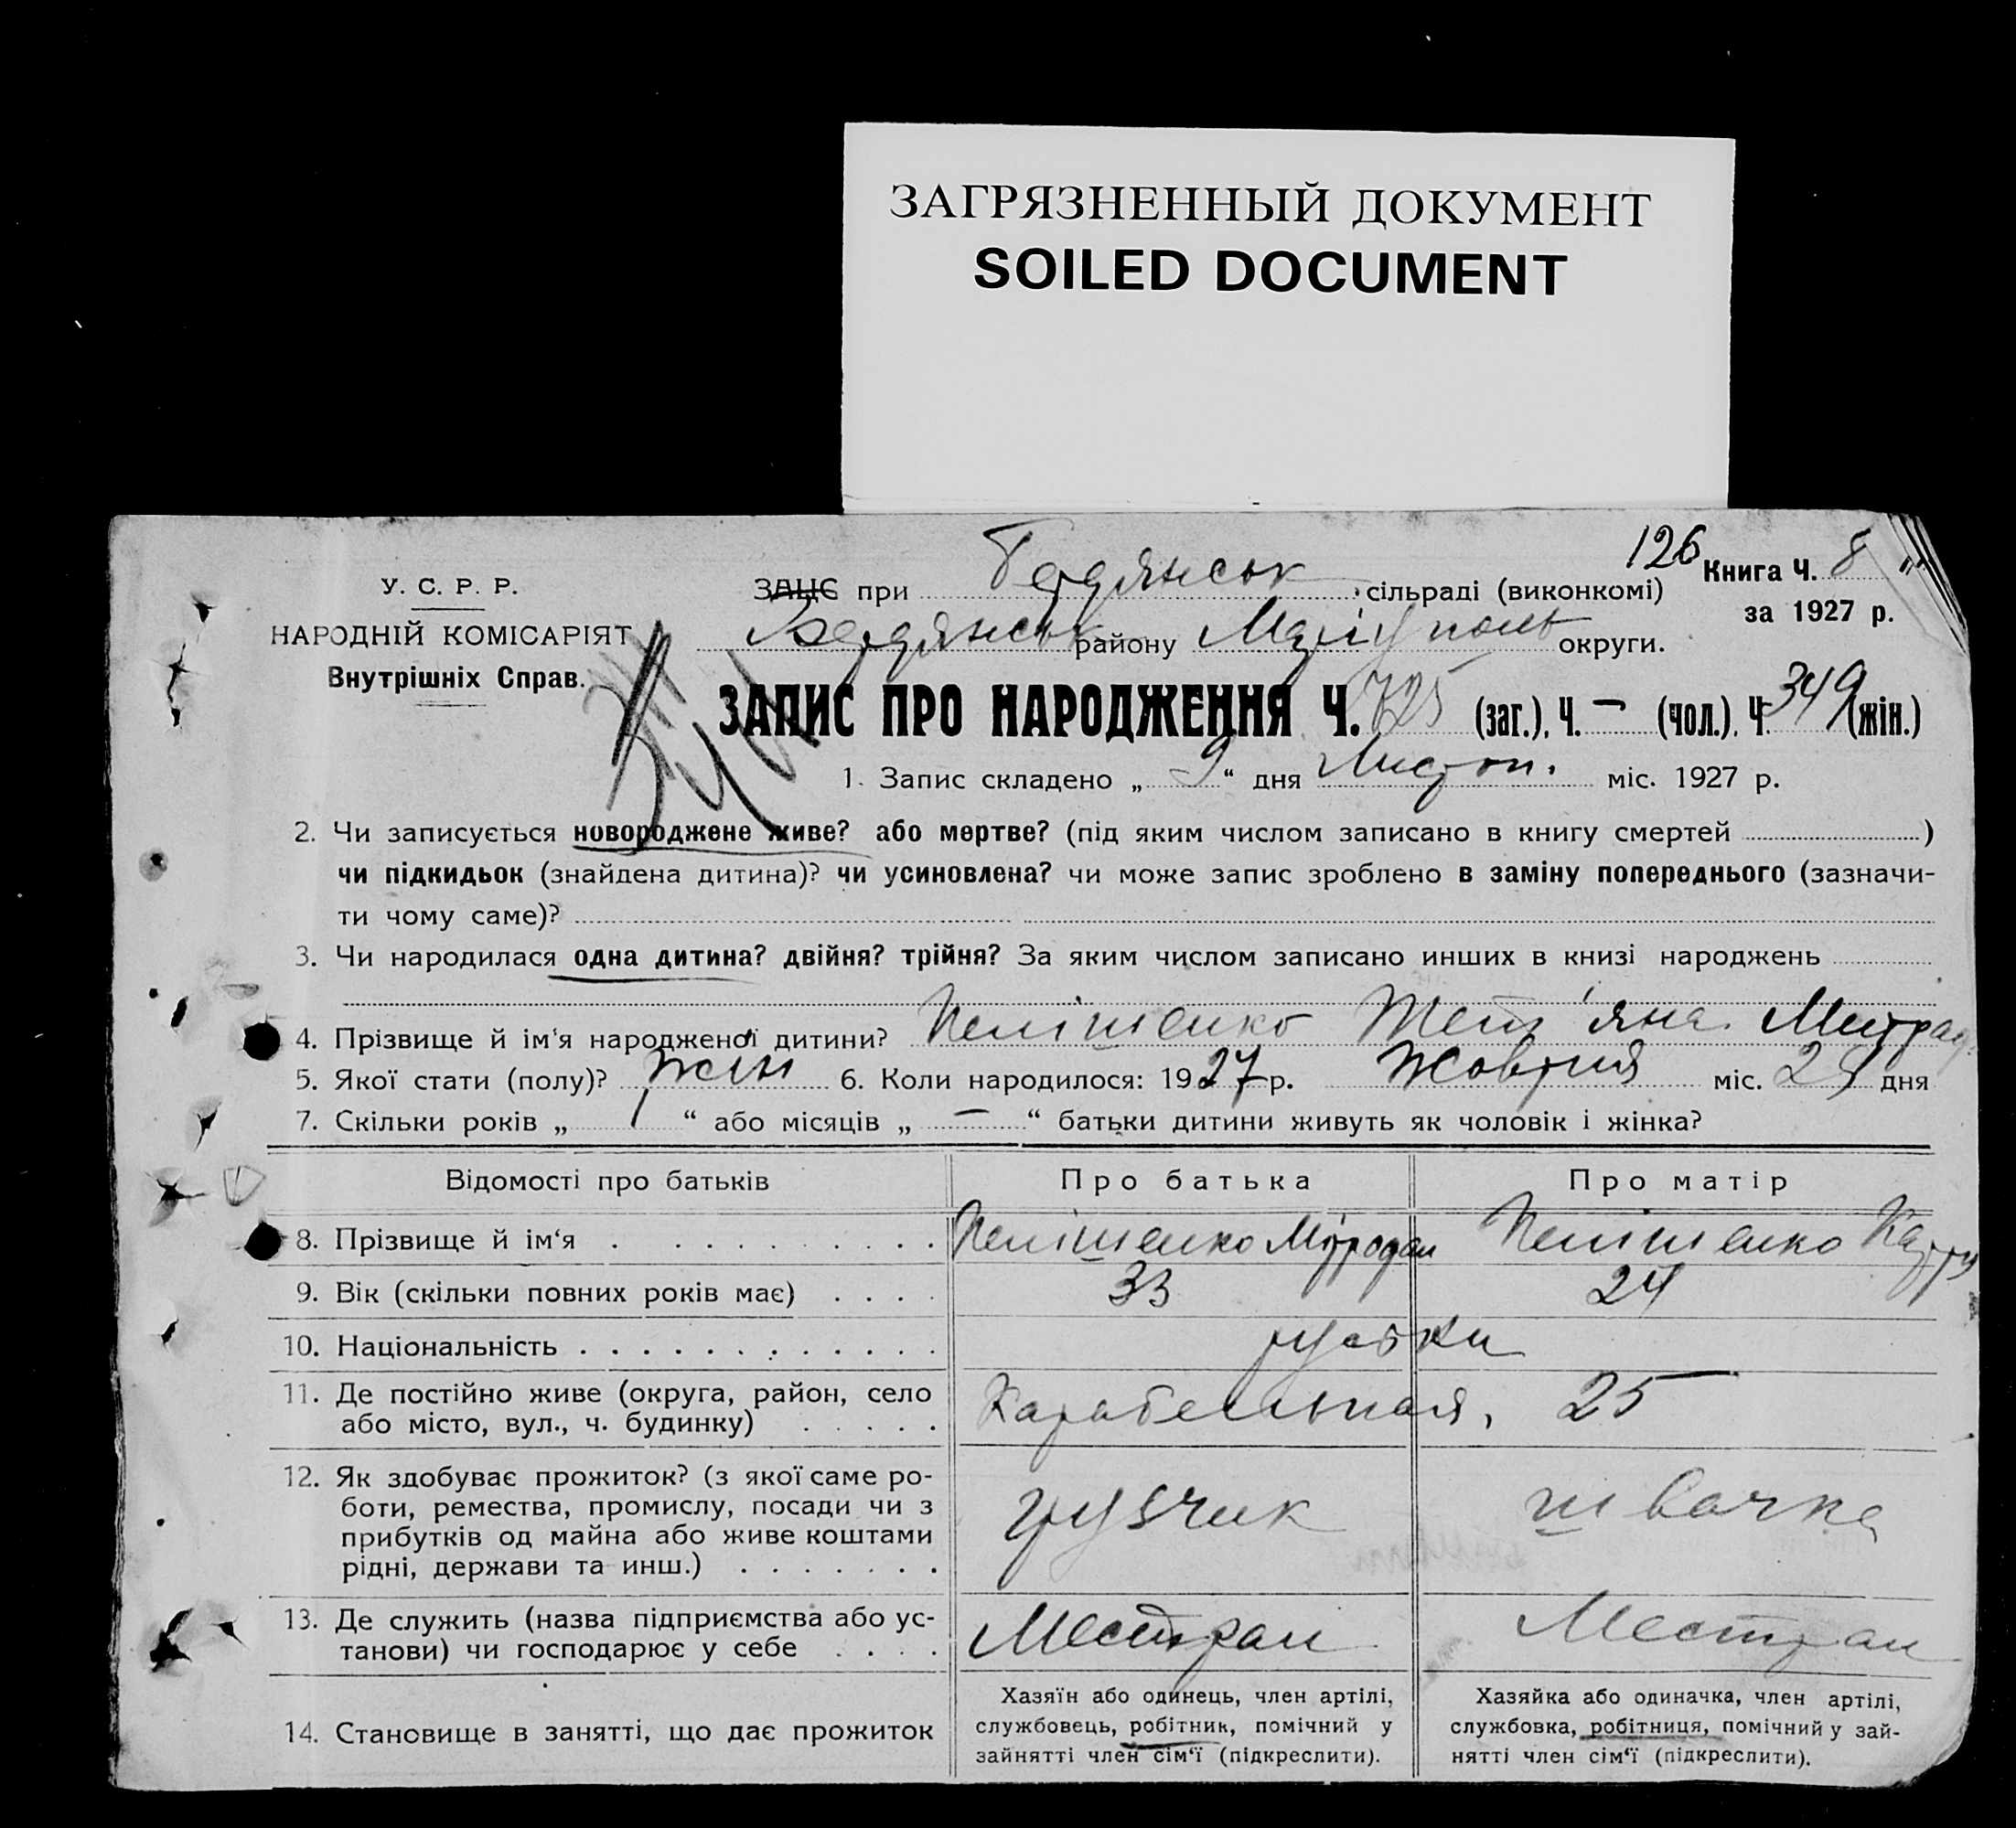 ЗАГРЯЗНЕННЫЙ ДОКУМЕНТ
SOILED DOCUMENT
126 Книга Ч. 8
за 1927 р.
У. С. Р. Р.
НАРОДНІЙ КОМІСАРІЯТ
Внутрішніх Справ.
ЗАЦС при Бердянськ сільраді (виконкомі)
Бердянськ району Маріуполь округи.
ЗАПИС ПРО НАРОДЖЕННЯ Ч. 725 (заг.), Ч. — (чол.), Ч. 349 (жін.)
1. Запис складено „ 9 “ дня Листоп. міс. 1927 р.
2. Чи записується новороджене живе? або мертве? (під яким числом записано в книгу смертей )
чи підкидьок (знайдена дитина)? чи усиновлена? чи може запис зроблено в заміну попереднього (зазначи-
ти чому саме)?
3. Чи народилася одна дитина? двійня? трійня? За яким числом записано инших в книзі народжень
4. Прізвище й ім‘я народженої дитини? Тет'яна
5. Якої стати (полу)? жін 6. Коли народилося: 1927 р. Жовтня міс. дня
7. Скільки років „ 1 “ або місяців „ — “ батьки дитини живуть як чоловік і жінка?
Відомості про батьків Про батька Про матір
8. Прізвище й ім‘я
9. Вік (скільки повних років має) 33 24
10. Національність руські
11. Де постійно живе (округа, район, село
або місто, вул., ч. будинку) Карабельная, 25
12. Як здобуває прожиток? (з якої саме ро-
боти, ремества, промислу, посади чи з
прибутків од майна або живе коштами
рідні, держави та инш.) грузчик швачка
13. Де служить (назва підприємства або ус-
танови) чи господарює у себе Местран Местран
14. Становище в занятті, що дає прожиток
Хазяїн або одинець, член артілі,
службовець, робітник, помічний у
зайнятті член сім‘ї (підкреслити).
Хазяйка або одиначка, член артілі,
службовка, робітниця, помічний у зай-
нятті член сім‘ї (підкреслити).